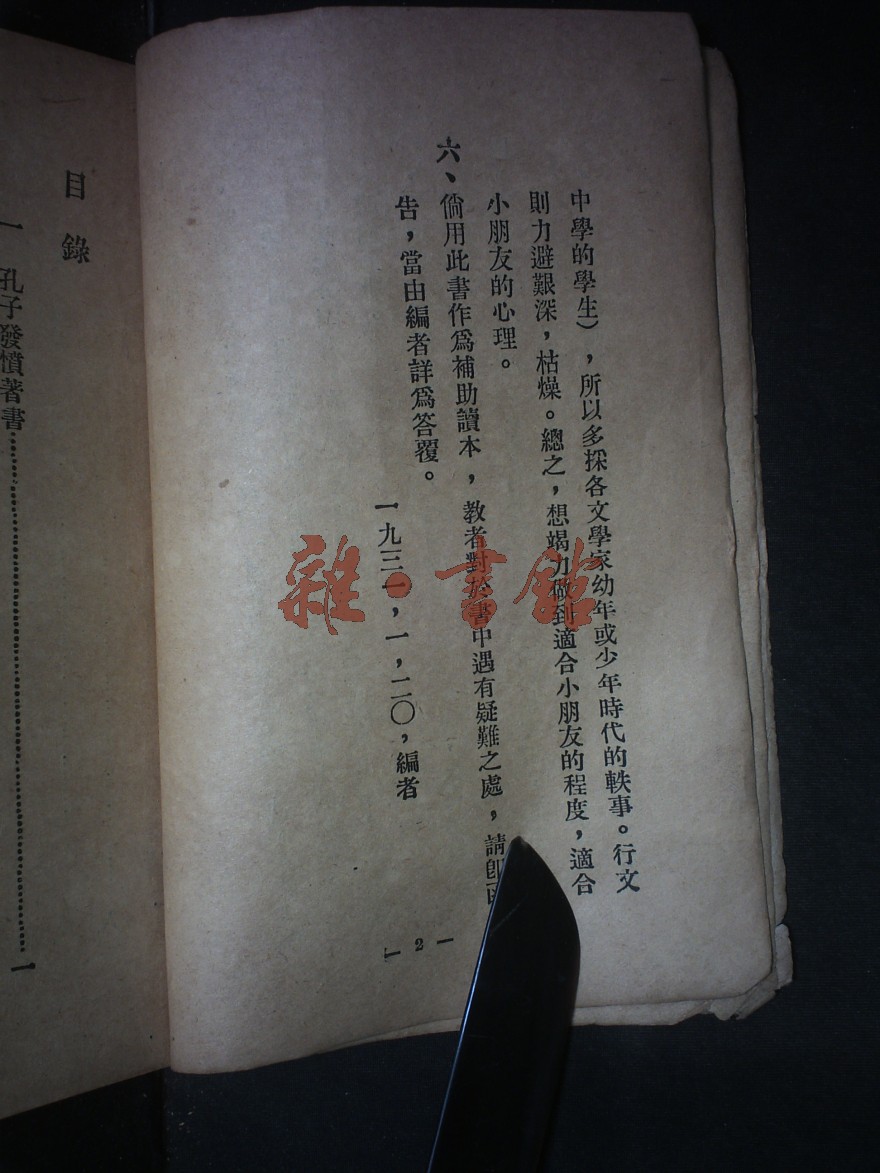 中學的學生），所以多採各文學家幼年或少年時代的軼事。行文
則力避艱深，枯燥。總之，想竭力做到適合小朋友的程度，適合
小朋友的心理。
六、倘用此書作爲補助讀本，教者對於書中遇有疑難之處，請卽
告，當由編者詳爲答覆。
一九三一，一，二〇，編者
— 2 —
目錄
一 孔子發憤著書……………………一
雜·書館